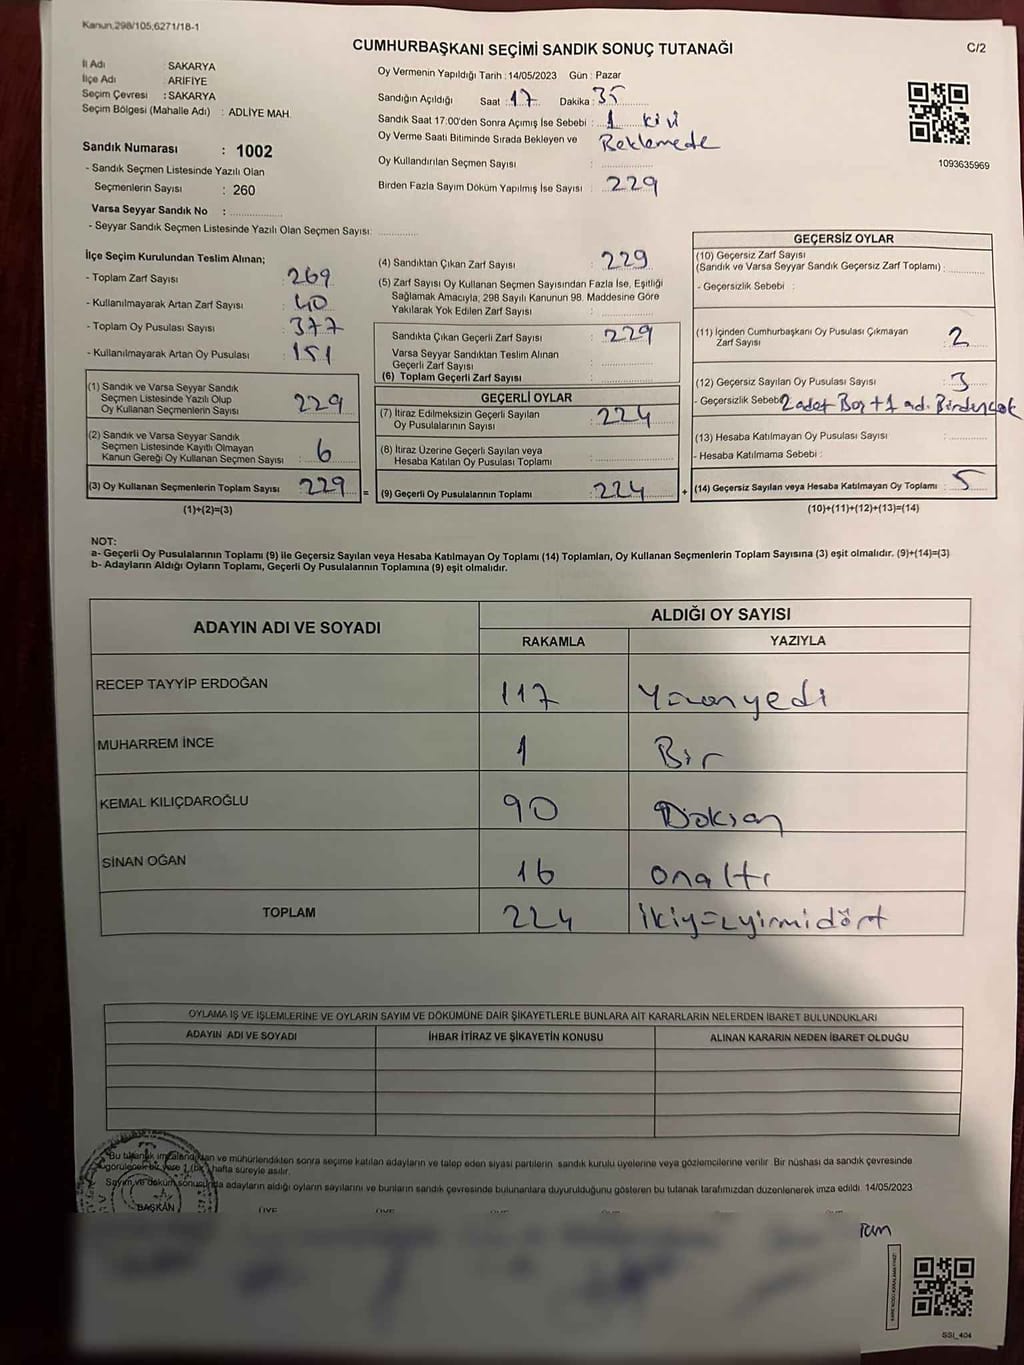 Kanun,298/105,6271/18-1
CUMHURBAŞKANI SEÇİMİ SANDIK SONUÇ TUTANAĞI
C/2
İl Adı : SAKARYA
İlçe Adı : ARİFİYE
Seçim Çevresi : SAKARYA
Seçim Bölgesi (Mahalle Adı) : ADLİYE MAH.
Sandık Numarası : 1002
- Sandık Seçmen Listesinde Yazılı Olan
Seçmenlerin Sayısı : 260
Varsa Seyyar Sandık No :
- Seyyar Sandık Seçmen Listesinde Yazılı Olan Seçmen Sayısı:
Oy Vermenin Yapıldığı Tarih : 14/05/2023 Gün : Pazar
Sandığın Açıldığı Saat : 17 Dakika : 35
Sandık Saat 17:00'den Sonra Açımış İse Sebebi : 1 kişi
Oy Verme Saati Bitiminde Sırada Bekleyen ve Beklemede
Oy Kullandırılan Seçmen Sayısı :
Birden Fazla Sayım Döküm Yapılmış İse Sayısı : 229
1093635969
İlçe Seçim Kurulundan Teslim Alınan;
- Toplam Zarf Sayısı : 269
- Kullanılmayarak Artan Zarf Sayısı : 40
- Toplam Oy Pusulası Sayısı : 377
- Kullanılmayarak Artan Oy Pusulası : 151
(1) Sandık ve Varsa Seyyar Sandık
Seçmen Listesinde Yazılı Olup
Oy Kullanan Seçmenlerin Sayısı : 229
(2) Sandık ve Varsa Seyyar Sandık
Seçmen Listesinde Kayıtlı Olmayan
Kanun Gereği Oy Kullanan Seçmen Sayısı : 6
(3) Oy Kullanan Seçmenlerin Toplam Sayısı : 229 =
(1)+(2)=(3)
(4) Sandıktan Çıkan Zarf Sayısı : 229
(5) Zarf Sayısı Oy Kullanan Seçmen Sayısından Fazla İse, Eşitliği
Sağlamak Amacıyla, 298 Sayılı Kanunun 98. Maddesine Göre
Yakılarak Yok Edilen Zarf Sayısı :
Sandıkta Çıkan Geçerli Zarf Sayısı : 229
Varsa Seyyar Sandıktan Teslim Alınan
Geçerli Zarf Sayısı :
(6) Toplam Geçerli Zarf Sayısı :
GEÇERLİ OYLAR
(7) İtiraz Edilmeksizin Geçerli Sayılan
Oy Pusulalarının Sayısı : 224
(8) İtiraz Üzerine Geçerli Sayılan veya
Hesaba Katılan Oy Pusulası Toplamı :
(9) Geçerli Oy Pusulalarının Toplamı : 224 +
GEÇERSİZ OYLAR
(10) Geçersiz Zarf Sayısı
(Sandık ve Varsa Seyyar Sandık Geçersiz Zarf Toplamı) :
- Geçersizlik Sebebi :
(11) İçinden Cumhurbaşkanı Oy Pusulası Çıkmayan
Zarf Sayısı : 2
(12) Geçersiz Sayılan Oy Pusulası Sayısı : 3
- Geçersizlik Sebebi 2 adet Boş + 1 ad. Birdençok
(13) Hesaba Katılmayan Oy Pusulası Sayısı :
- Hesaba Katılmama Sebebi :
(14) Geçersiz Sayılan veya Hesaba Katılmayan Oy Toplamı : 5
(10)+(11)+(12)+(13)=(14)
NOT:
a- Geçerli Oy Pusulalarının Toplamı (9) ile Geçersiz Sayılan veya Hesaba Katılmayan Oy Toplamı (14) Toplamları, Oy Kullanan Seçmenlerin Toplam Sayısına (3) eşit olmalıdır. (9)+(14)=(3)
b- Adayların Aldığı Oyların Toplamı, Geçerli Oy Pusulalarının Toplamına (9) eşit olmalıdır.
ADAYIN ADI VE SOYADI ALDIĞI OY SAYISI
RAKAMLA YAZIYLA
RECEP TAYYİP ERDOĞAN 117 Yüzonyedi
MUHARREM İNCE 1 Bir
KEMAL KILIÇDAROĞLU 90 Doksan
SİNAN OĞAN 16 onaltı
TOPLAM 224 ikiyüzyirmidört
OYLAMA İŞ VE İŞLEMLERİNE VE OYLARIN SAYIM VE DÖKÜMÜNE DAİR ŞİKAYETLERLE BUNLARA AİT KARARLARIN NELERDEN İBARET BULUNDUKLARI
ADAYIN ADI VE SOYADI İHBAR İTİRAZ VE ŞİKAYETİN KONUSU ALINAN KARARIN NEDEN İBARET OLDUĞU
Bu tutanak imzalandıktan ve mühürlendikten sonra seçime katılan adayların ve talep eden siyasi partilerin sandık kurulu üyelerine veya gözlemcilerine verilir. Bir nüshası da sandık çevresinde
görülecek bir yere 1 (bir) hafta süreyle asılır.
Sayım ve döküm sonucunda adayların aldığı oyların sayılarını ve bunların sandık çevresinde bulunanlara duyurulduğunu gösteren bu tutanak tarafımızdan düzenlenerek imza edildi. 14/05/2023
BAŞKAN ÜYE ÜYE
SSI_404